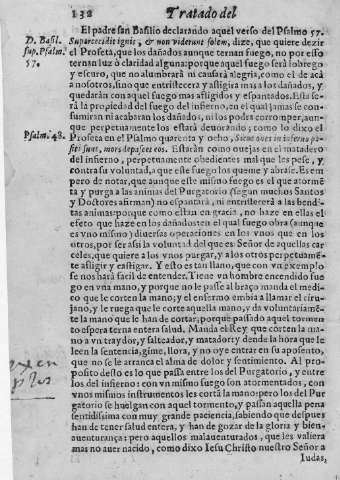 132 Tratado del
El padre san Basilio declarando aquel verso del Psalmo 57.
D. Basil. sup. Psalm. 57.
Supercecidit ignis, & non viderunt solem, dize, que quiere dezir
el Profeta, que los dañados aunque ternan fuego, no por esso
ternan luz ò claridad alguna: porque aquel fuego será lobrego
y escuro, que no alumbrará ni causará alegria, como el de acá
a nosotros, sino que entristecera y afligira mas a los dañados, y
quedarán con aquel fuego mas afligidos y espantados. Esta se
rá la propiedad del fuego del infierno, en el qual jamas se con-
sumiran ni acabaran los dañados, ni los podra corromper, aun-
que perpetuamente los estará deuorando; como lo dixo el
Psalm. 48.
Profeta en el Psalmo quarenta y ocho, Sicut oues in inferno po-
siti sunt, mors depascet eos. Estarán como ouejas en el matadero
del infierno, perpetuamente obedientes mal que les pese, y
contra su voluntad, a que este fuego los queme y abrase. Es em
pero de notar, que aunque este mismo fuego es el que atormē
ta y purga a las animas del Purgatorio (segun muchos Santos
y Doctores afirman) no espantará, ni entristecerá a las bendi-
tas animas: porque como estan en gracia, no haze en ellas el
efeto que haze en los dañados: en el qual fuego obra (aunque
es vno mismo) diuersas operaciones en los vnos que en los
otros, por ser assi la voluntad del que es Señor de aquellas car
celes, que quiere a los vnos purgar, y a los otros perpetuamē-
te affligir y castigar. Y esto es tan llano, que con vn exemplo
exem plos
se nos hará facil de entender. Tiene vn hombre encendido fue
go en vna mano, y porque no le passe al braço manda el medi-
co que le corten la mano; y el enfermo embia a llamar el ciru-
jano, y le ruega que le corte aquella mano, y da voluntariamē-
te la mano que le han de cortar, porque passado aquel tormen
to espera terna entera salud. Manda el Rey que corten la ma-
no a vn traydor, y salteador, y matador y dende la hora que le
leen la sentencia, gime, llora, y no oye entrar en su aposento,
que no se le arranca el alma de dolor y sentimiento. Al pro-
posito desto es lo que passa entre los del Purgatorio, y entre
los del infierno: con vn mismo fuego son atormentados, con
vnos mismos instrumentos les cortā la mano: pero los del Pur
gatorio se huelgan con aquel tormento, y passan aquella pena
sentidissima con muy grande paciencia, sabiendo que despues
han de tener salud entera, y han de gozar de la gloria y bien-
auenturança; pero aquellos malauenturados, que les valiera
mas no auer nacido, como dixo Iesu Christo nuestro Señor a
Iudas,